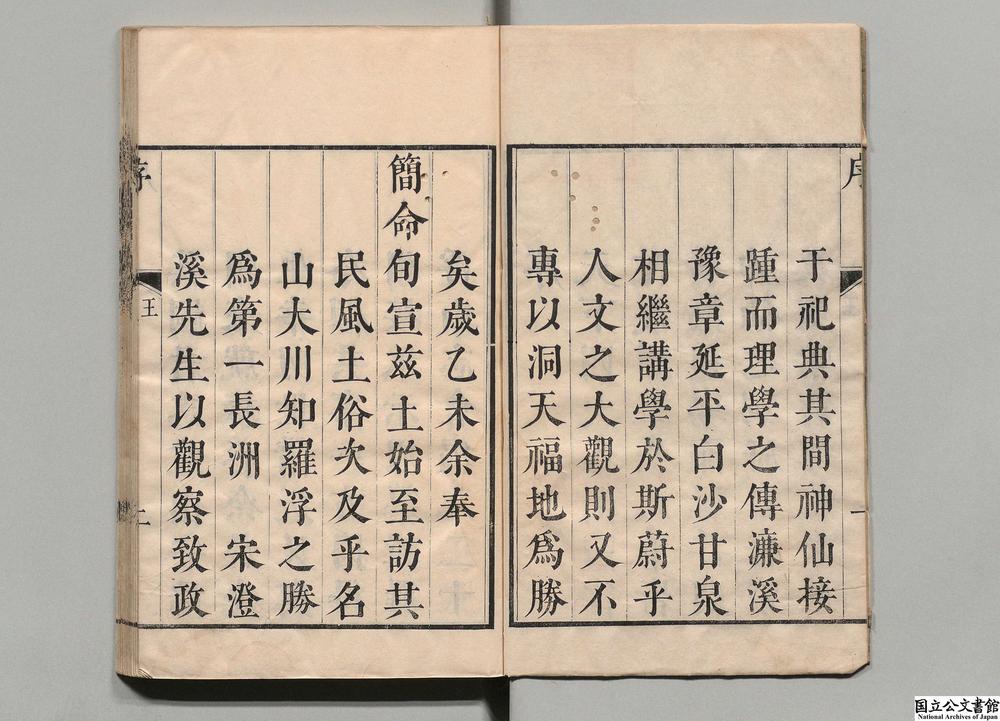 于祀典其間神仙接
踵而理學之傳濂溪
豫章延平白沙甘泉
相繼講學於斯蔚乎
人文之大觀則又不
專以洞天福地爲勝
矣歲乙未余奉
簡命旬宣茲土始至訪其
民風土俗次及乎名
山大川知羅浮之勝
爲第一長洲 宋澄
溪先生以觀察致政
序
王
国立公文書館
National Archives of Japan